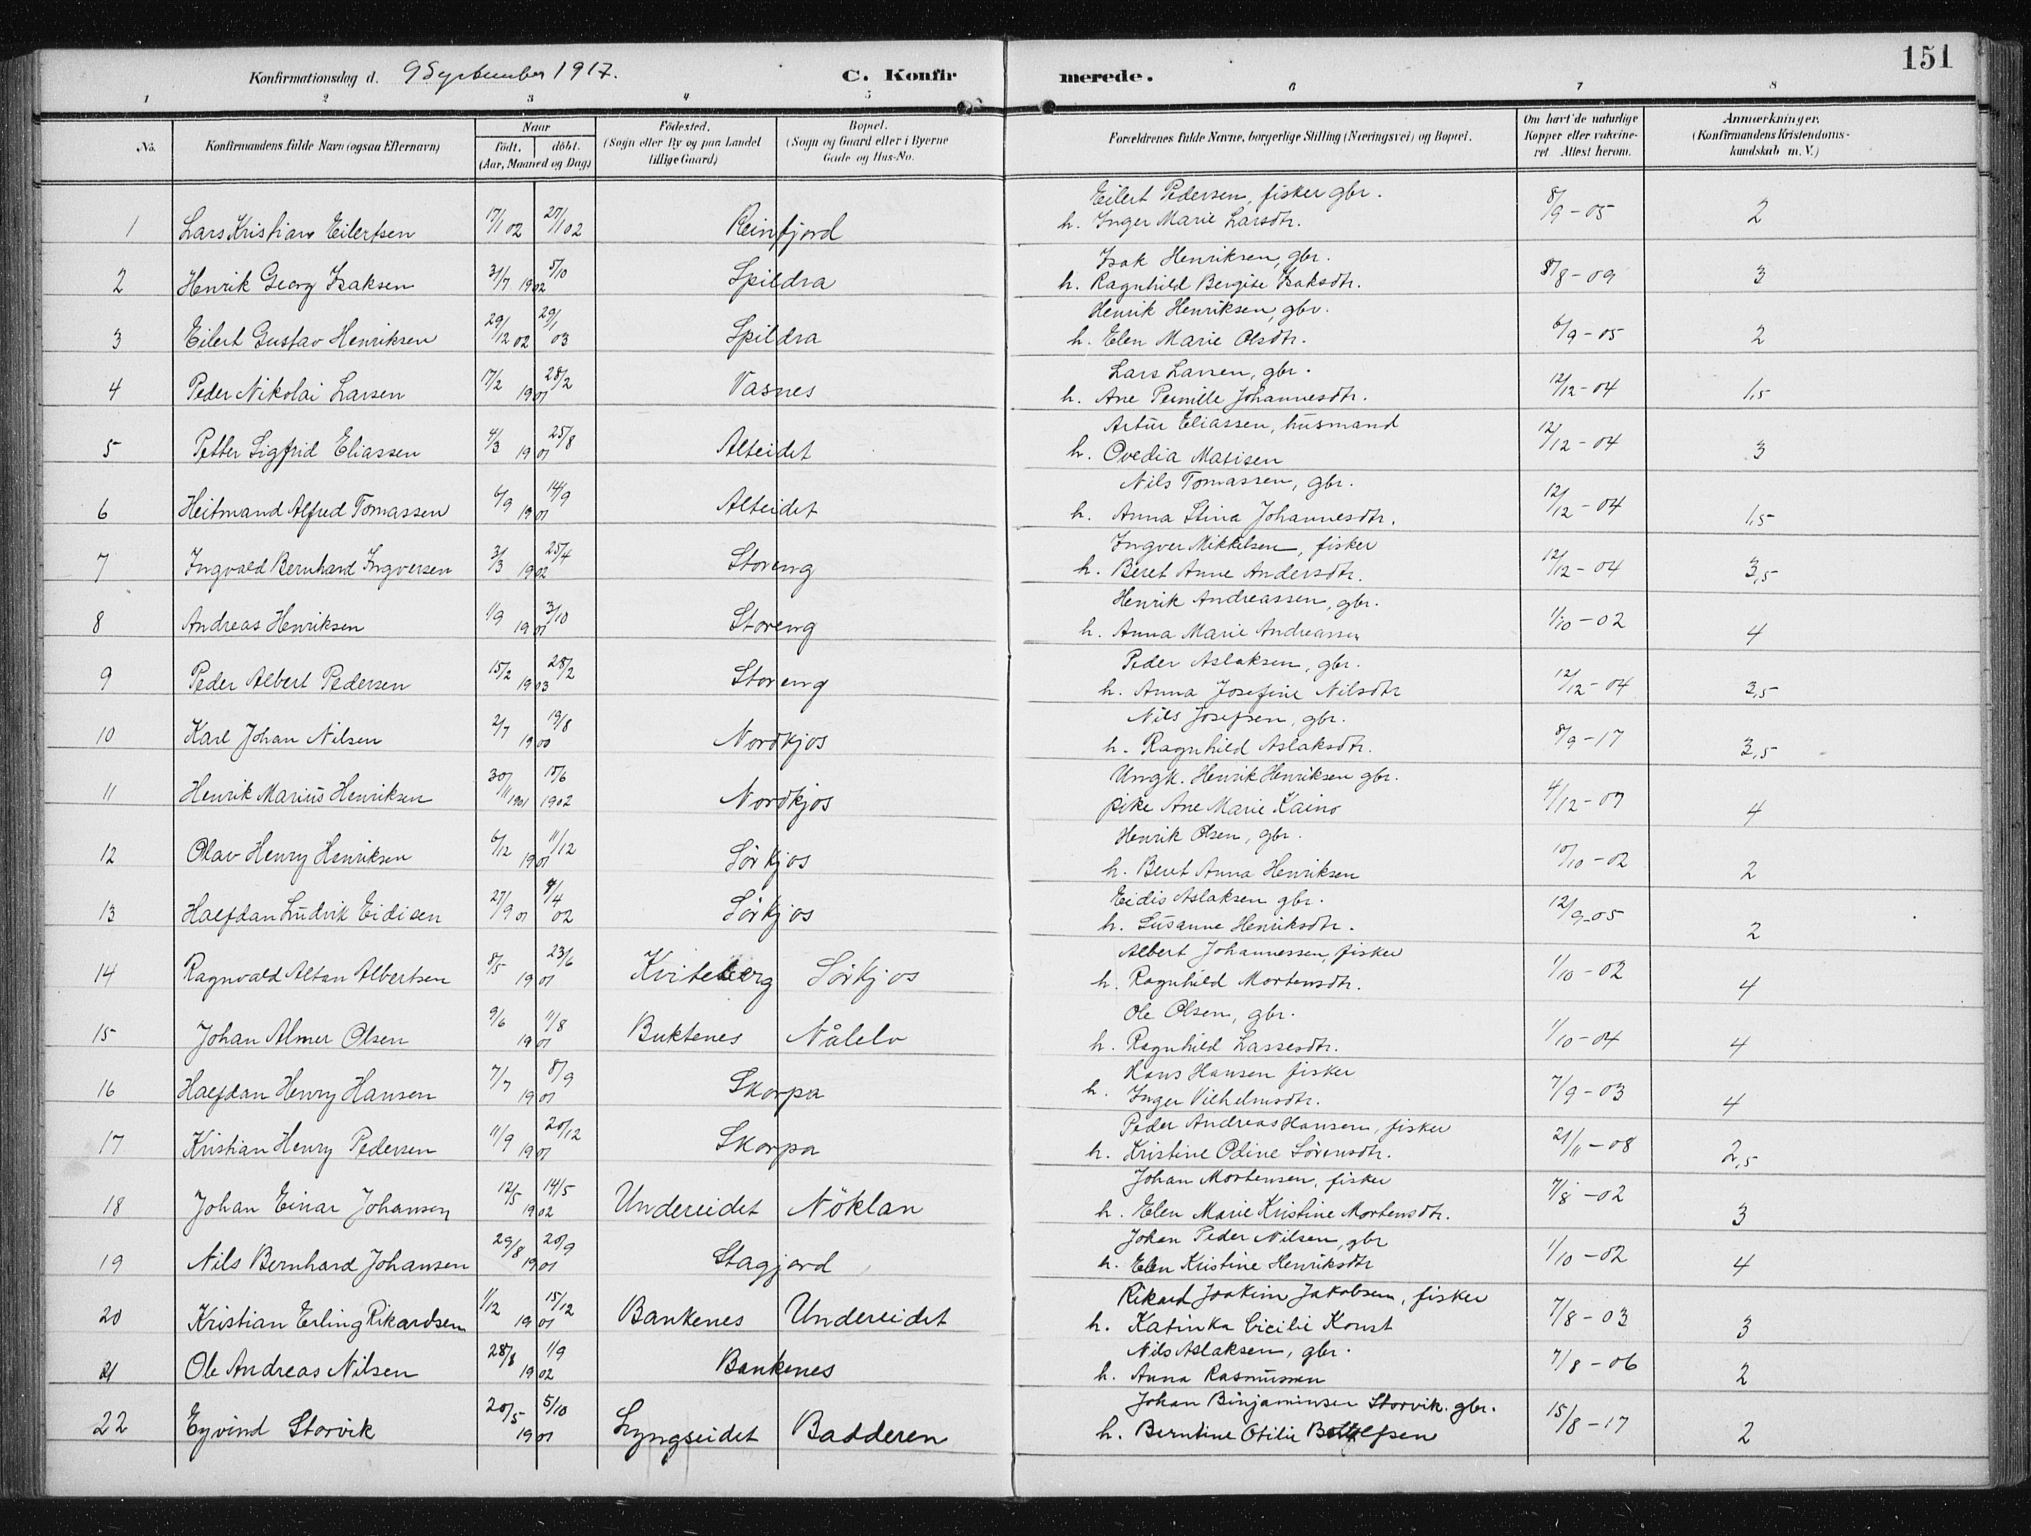 151
Konfirmationsdag d. 9 September 1917. C. Konfir merede.
1 2 3 4 5 6 7 8
No. Konfirmandens fulde Navn (ogsaa Efternavn) Naar født. døbt. (Aar, Maaned og Dag) Fødested. (Sogn eller By og paa Landet tillige Gaard) Bopæl. (Sogn og Gaard eller i Byerne Gade og Hus-No. Forældrenes fulde Navne, borgerlige Stilling (Næringsvei) og Bopæl. Om havt de naturlige Kopper eller vakcineret. Attest herom. Anmærkninger. (Konfirmandens Kristendomskundskab m. V.)
Eilert Pedersen, fisker gbr.
1 Lars Kristian Eilertsen 17/1 02 27/1 02 Reinfjord h. Inger Marie Larsdtr. 8/9-05 2
Isak Henriksen, gbr.
2 Henrik Georg Isaksen 31/7 5/10 1902 Spildra h. Ragnhild Bergite Isaksdtr. 8/8-09 3
Henrik Henriksen, gbr.
3 Eilert Gustav Henriksen 29/12 02 29/1 03 Spildra h. Elen Marie Olsdtr. 6/9-05 2
Lars Larsen, gbr.
4 Peder Nikolai Larsen 17/2 28/2 1901 Vasnes h. Ane Pernille Johannesdtr. 12/12-04 1,5
Artur Eliassen, husmand
5 Petter Sigfrid Eliassen 4/3 25/8 1901 Alteidet h. Ovedia Matisen 12/12-04 3
Nils Tomassen, gbr.
6 Heitmand Alfred Tomassen 6/9 14/9 1901 Alteidet h. Anna Stina Johannesdtr. 12/12-04 1,5
Ingver Mikkelsen, fisker
7 Ingvald Bernhard Ingversen 3/3 25/4 1902 Storeng h. Beret Anne Andersdtr. 12/12-04 3,5
Henrik Andreassen, gbr.
8 Andreas Henriksen 1/9 3/10 1901 Storeng h. Anna Marie Andreassen 1/10-02 4
Peder Aslaksen, gbr.
9 Peder Albert Pedersen 15/2 28/2 1903 Storeng h. Anna Josefine Nilsdtr 12/12-04 3,5
Nils Josefsen, gbr.
10 Karl Johan Nilsen 2/7 19/8 1900 Nordkjos h. Ragnhild Aslaksdtr. 8/9-17 3,5
Ungk. Henrik Henriksen gbr.
11 Henrik Marius Henriksen 30/11 1901 15/6 1902 Nordkjos pike Ane Marie Kaino 4/12-07 4
Henrik Olsen, gbr.
12 Olav Henry Henriksen 6/12 11/12 1901 Sørkjos h. Beret Anna Henriksen 10/10-02 2
Eidis Aslaksen gbr.
13 Halfdan Ludvik Eidisen 27/9 01 4/4 02 Sørkjos h. Susanne Henriksdtr. 12/9-05 2
Albert Johannessen, fisker
14 Ragnvald Altan Albertsen 8/5 23/6 1901 Kviteberg Sørkjos h. Ragnhild Mortensdtr. 1/10-02 4
Ole Olsen, gbr.
15 Johan Almer Olsen 9/6 11/8 1901 Buktenes Nålelv h. Ragnhild Lassesdtr. 1/10-04 4
Hans Hansen fisker
16 Halfdan Henry Hansen 7/7 8/9 1901 Skorpa h. Inger Vilhelmsdtr. 7/9-03 4
Peder Andreas Hansen, fisker
17 Kristian Henry Pedersen 11/9 20/12 1901 Skorpa h. Kristine Odine Sørensdtr. 21/11-08 2,5
Johan Mortensen, fisker
18 Johan Einar Johansen 12/5 14/5 1902 Undereidet Nöklan h. Elen Marie Kristine Mortensdtr. 7/8-02 3
Johan Peder Nilsen, gbr
19 Nils Bernhard Johansen 29/8 20/9 1901 Stagjord h. Elen Kristine Henriksdtr 1/10-02 4
Rikard Joakim Jakobsen, fisker
20 Kristian Erling Rikardsen 1/12 15/12 1901 Bankenes Undereidet h. Katinka Cicilie Konst 7/8-03 3
Nils Aslaksen, gbr.
21 Ole Andreas Nilsen 28/8 1/9 1902 Bankenes h. Anna Rasmussen 7/8-06 2
Johan Binjaminsen Storvik. gbr.
22 Eyvind Storvik 20/5 5/10 1901 Lyngseidet Badderen h. Berntine Otilie 15/8-17 2